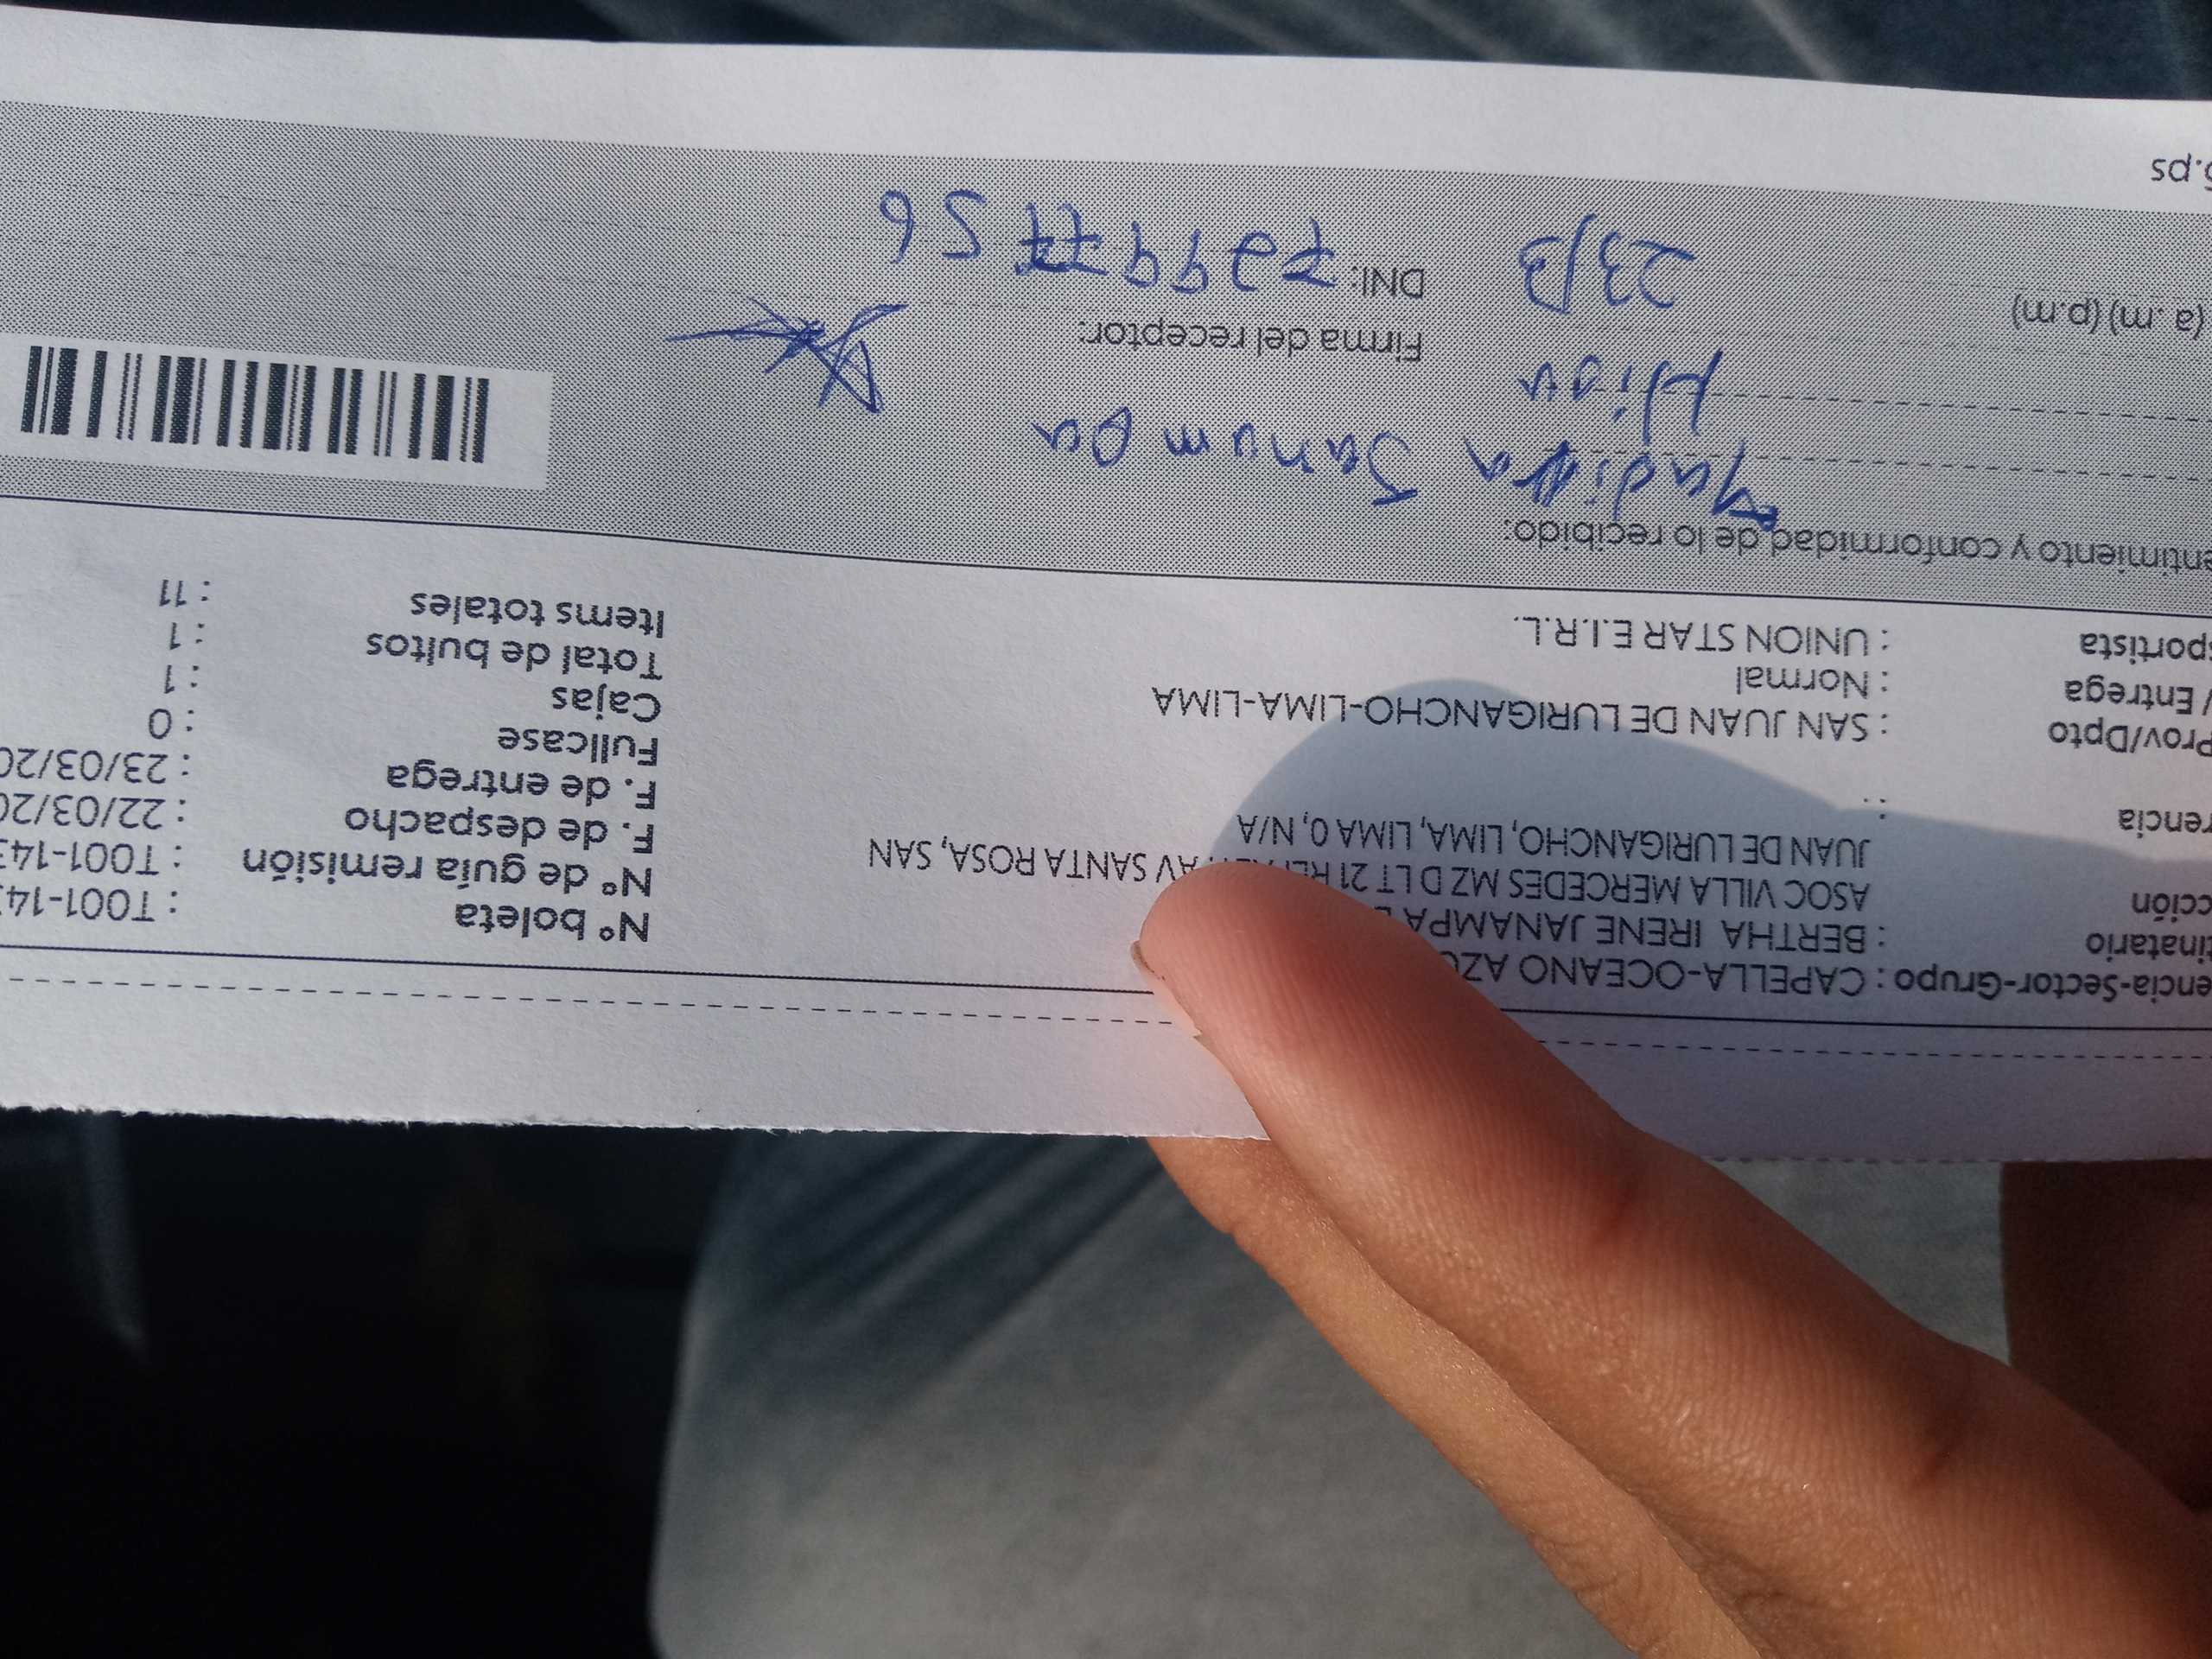 encia-Sector-Grupo : CAPELLA-OCEANO AZU
tinatario : BERTHA IRENE JANAMPA
cción ASOC VILLA MERCEDES MZ D LT 21 AV SANTA ROSA, SAN
JUAN DE LURIGANCHO, LIMA, LIMA 0, N/A
rencia :
Prov/Dpto : SAN JUAN DE LURIGANCHO-LIMA-LIMA
/ Entrega : Normal
sportista : UNION STAR E.I.R.L.
N° boleta : T001-143
N° de guía remisión : T001-143
F. de despacho : 22/03/20
F. de entrega : 23/03/20
Fullcase : 0
Cajas : 1
Total de bultos : 1
Items totales : 11
entimiento y conformidad de lo recibido:
Janampa
Hija
Firma del receptor:
(a .m) (p.m) 23/3 DNI: 72997756
.ps